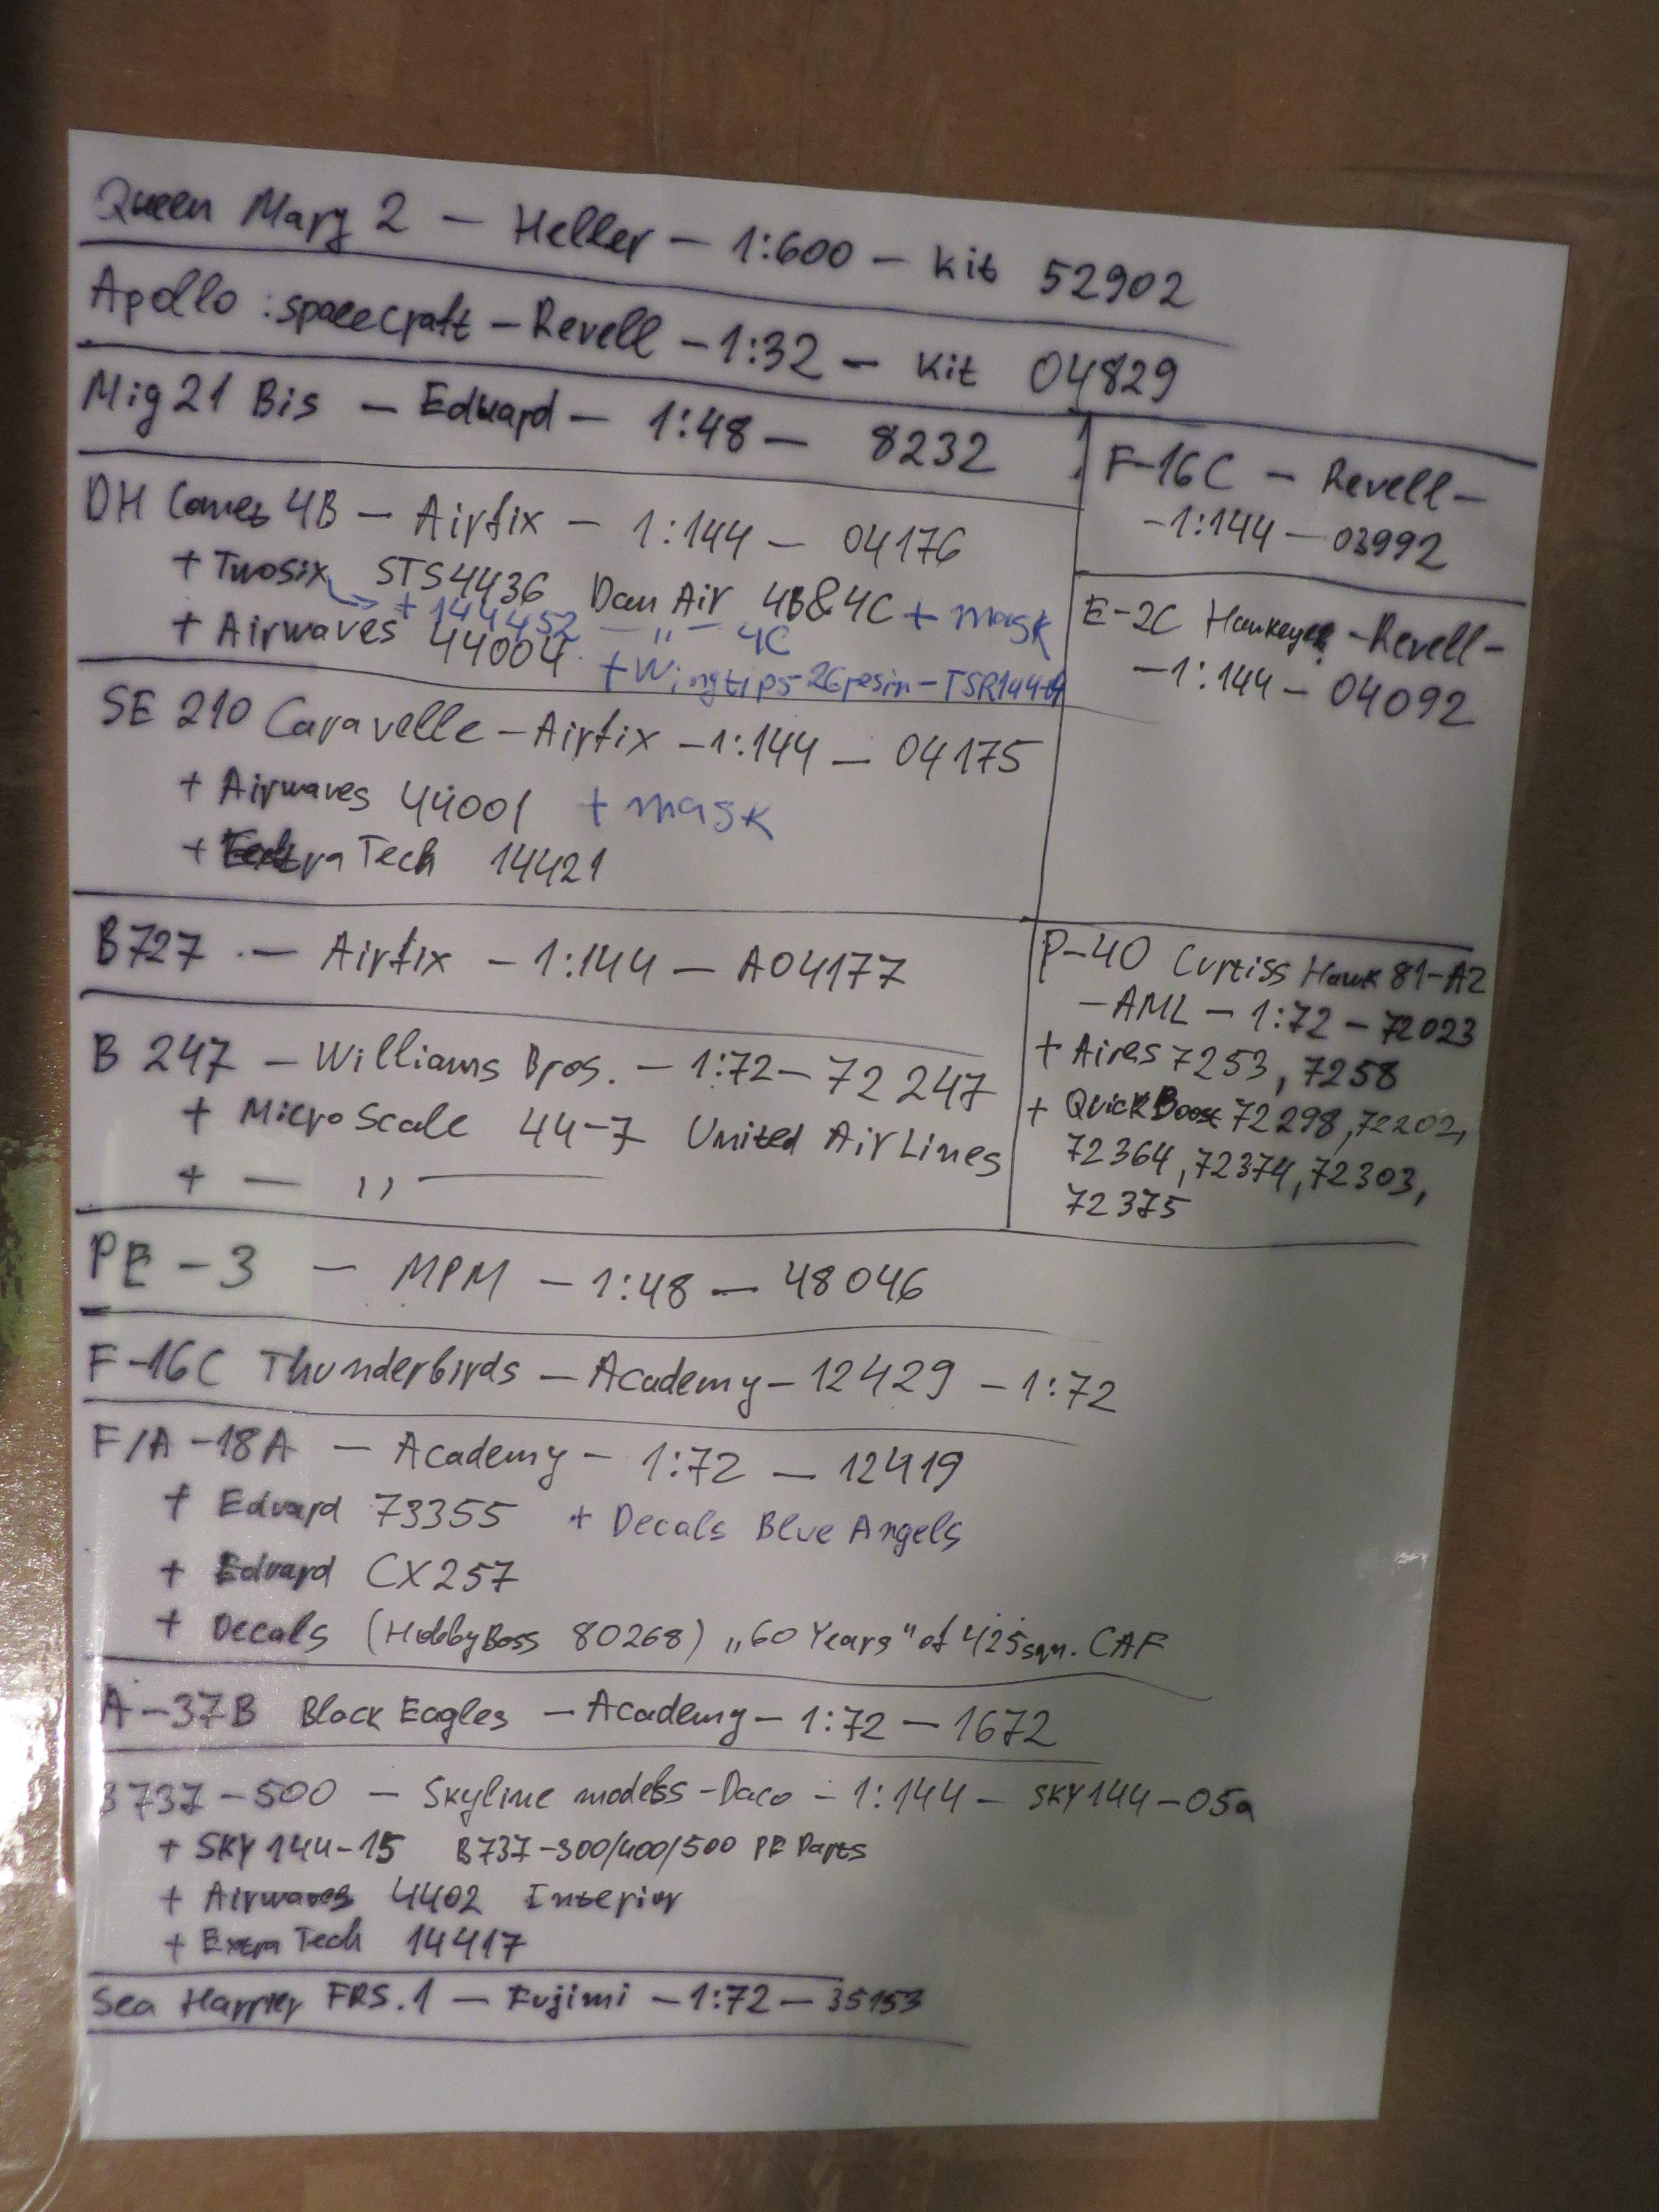 Queen Mary 2 – Heller – 1:600 – Kit 52902
Apollo : spacecraft – Revell – 1:32 – Kit 04829
Mig 21 Bis – Eduard – 1:48 – 8232
DH Comet 4B – Airfix – 1:144 – 04176
+ Twosix STS4436 Dan Air 4B&4C + mask
+ 144452 – " – 4C
+ Airwaves 44004
+ Wingtips-26resin-TSR144
SE 210 Caravelle – Airfix – 1:144 – 04175
+ Airwaves 44001 + mask
+ Extra Tech 14421
B727 – Airfix – 1:144 – A04177
B 247 – Williams Bros. – 1:72 – 72 247
+ MicroScale 44-7 United AirLines
+ — ,, —
F-16C – Revell –
-1:144 – 03992
E-2C Hawkeye – Revell –
-1:144 – 04092
P-40 Curtiss Hawk 81-A2
– AML – 1:72 – 72023
+ Aires 7253, 7258
+ QuickBoost 72298, 72202,
72364, 72374, 72303,
72375
PE – 3 – MPM – 1:48 – 48046
F-16C Thunderbirds – Academy – 12429 – 1:72
F/A -18A – Academy – 1:72 – 12419
+ Eduard 73355 + Decals Blue Angels
+ Eduard CX257
+ Decals (HobbyBoss 80268) „60 Years" of 425sqn. CAF
A-37B Black Eagles – Academy – 1:72 – 1672
B737-500 – Skyline models – Daco – 1:144 – SKY144-05a
+ SKY 144-15 B737-300/400/500 PE Parts
+ Airwaves 4402 Interior
+ Extra Tech 14417
Sea Harrier FRS.1 – Fujimi – 1:72 – 35153